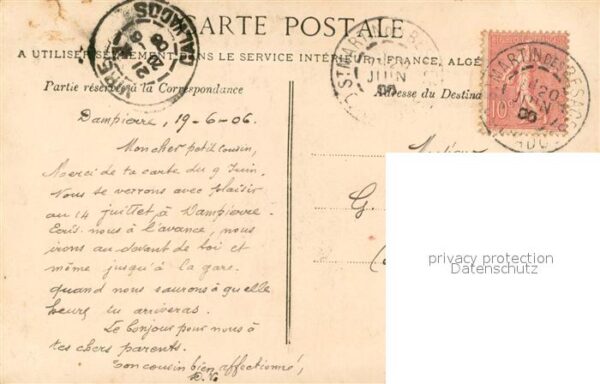 CARTE POSTALE
A UTILISER SEULEMENT DANS LE SERVICE INTÉRIEUR FRANCE, ALGÉ
Partie réservée à la Correspondance
Adresse du Destina
Dampierre, 19-6-06.
Mon cher petit cousin,
Merci de ta carte du 9 Juin.
Nous se verrons avec plaisir
au 14 juillet, à Dampierre.
Ecris nous à l'avance, nous
irons au devant de toi et
même jusqu'à la gare.
quand nous saurons à quelle
heure tu arriveras.
Le bonjour pour nous à
tes chers parents.
Ton cousin bien affectionné,
G.
10
20
JUIN
06
JUIN
privacy protection
Datenschutz